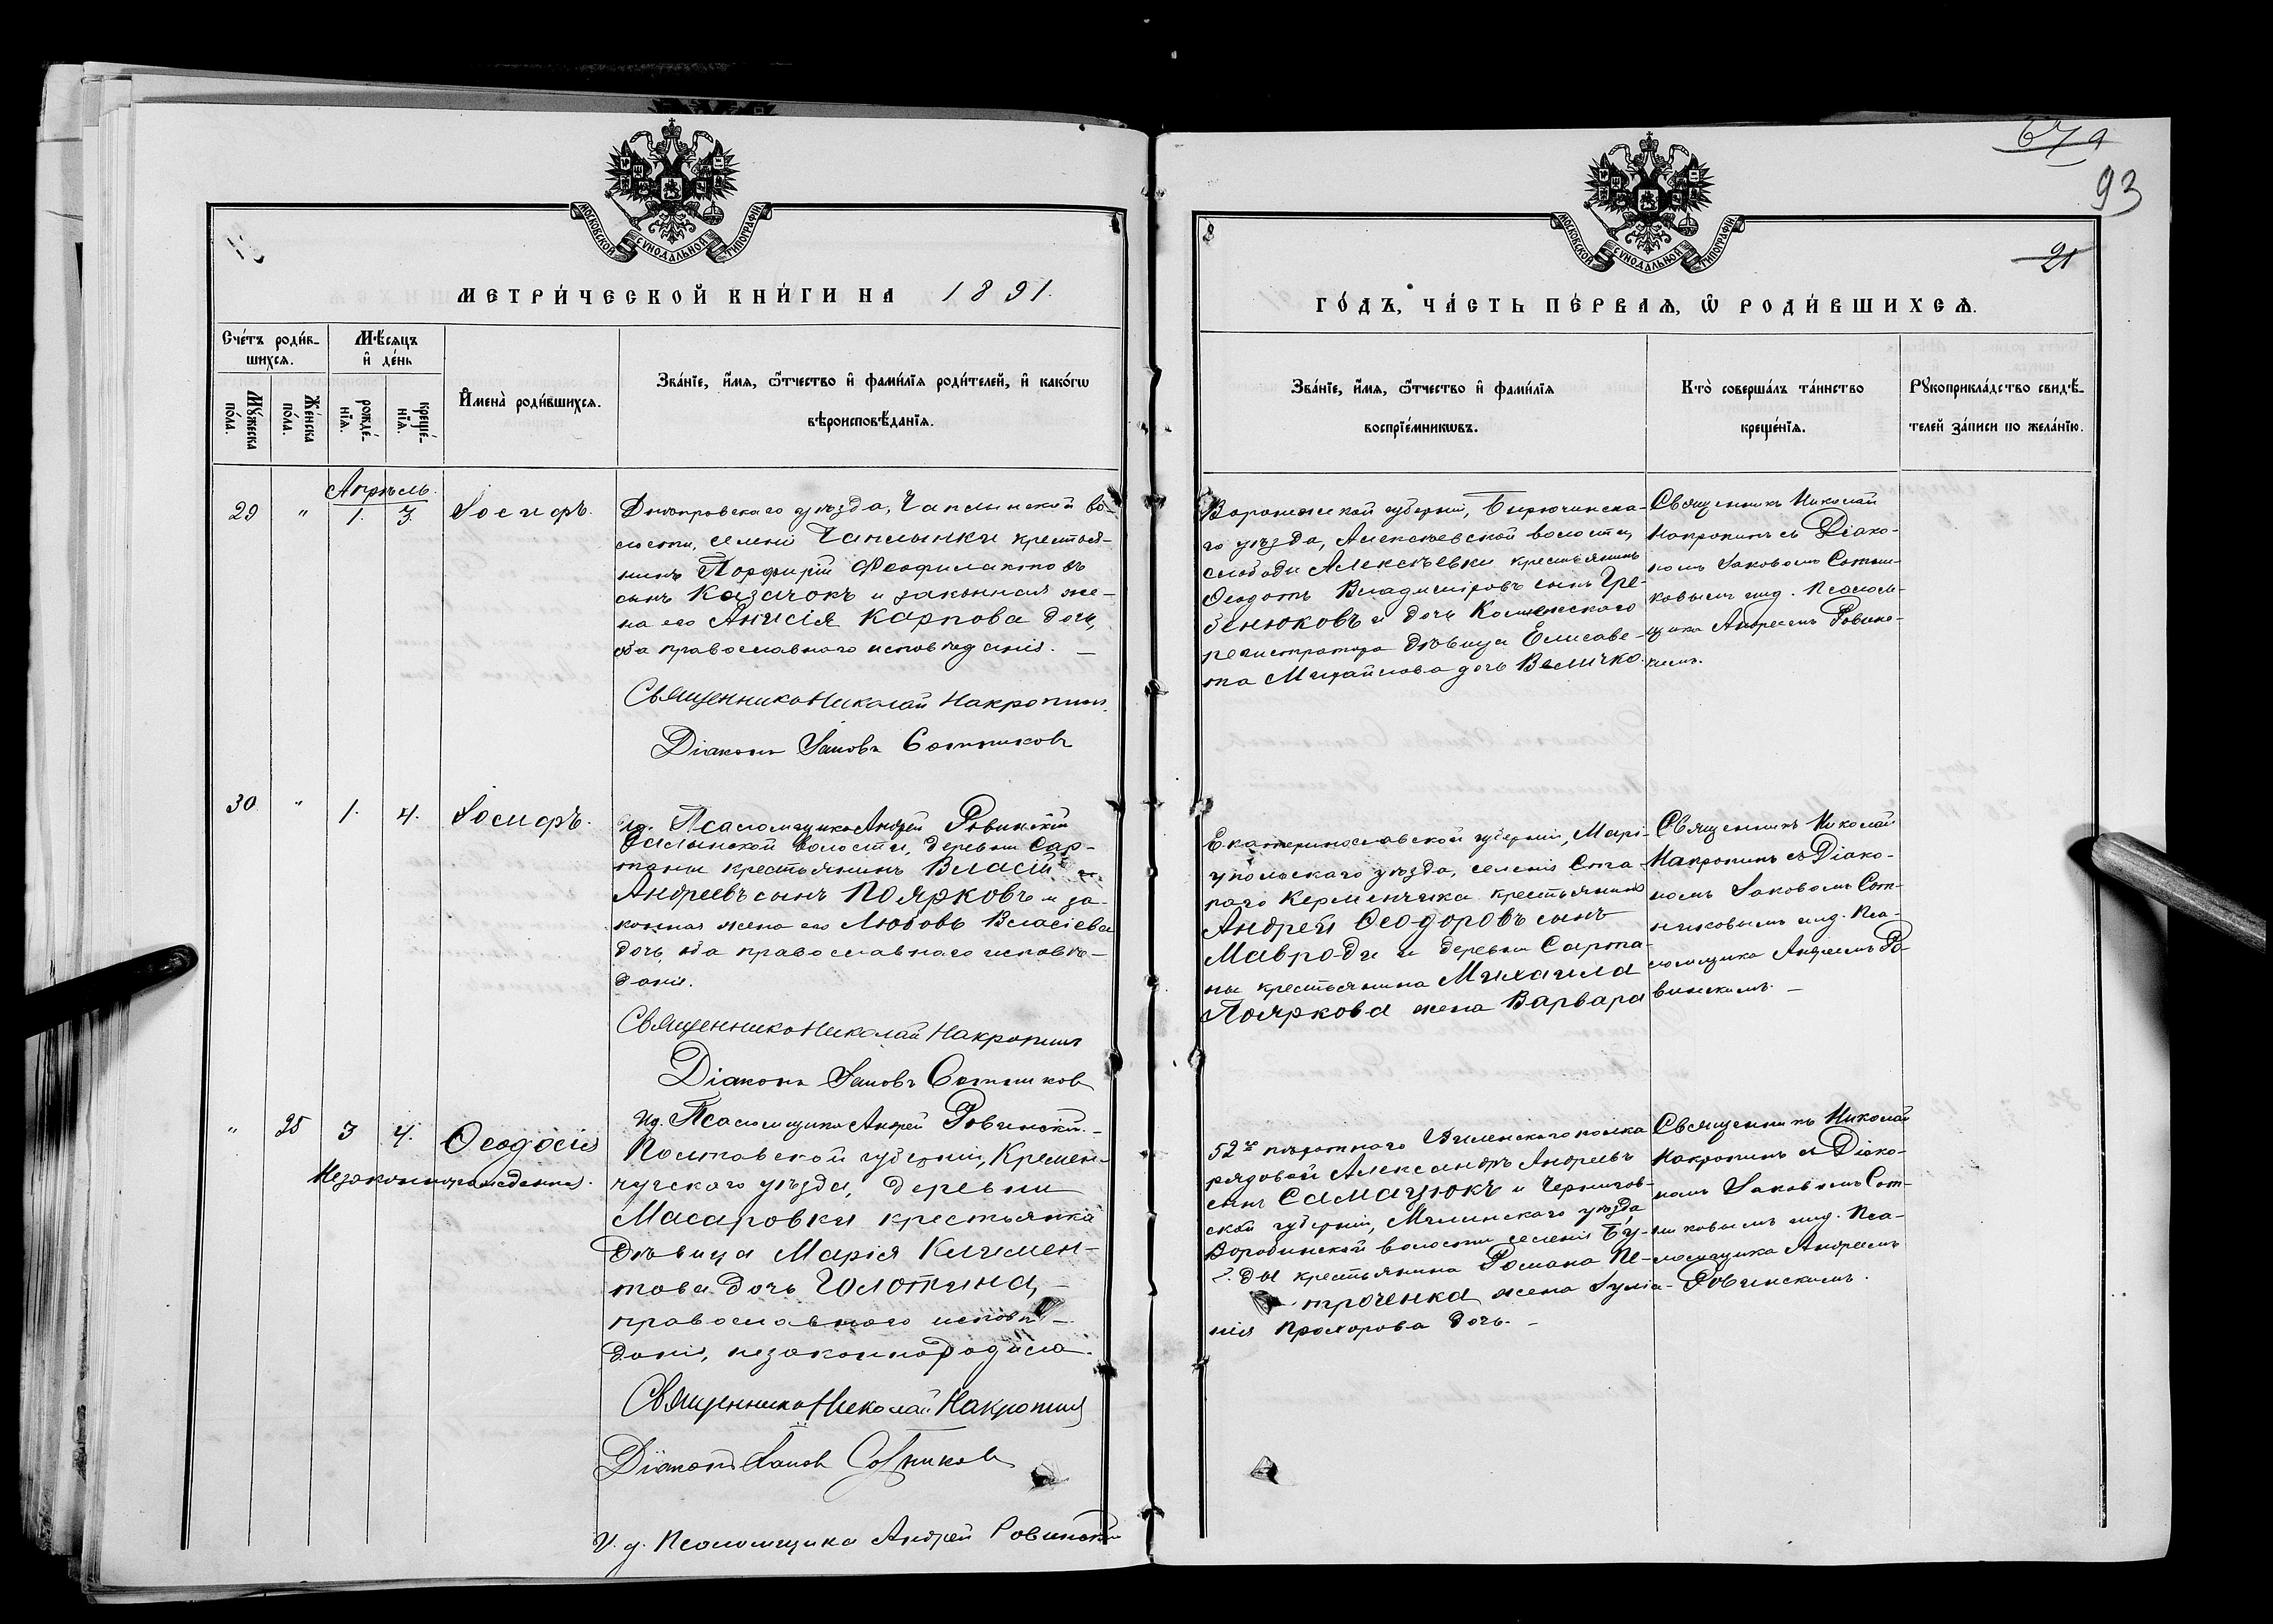 МОСКОВСКОЙ СѴНОДАЛЬНОЙ ТИПОГРАФІИ
МЕТРИ́ЧЕСКОЙ КНИ́ГИ НА 1891.
Сче́тъ роди́в-
шихся.
Мѣ́сяцъ
и҆ де́нь
Мꙋ́жеска
по́ла.
Же́нска
по́ла.
рожде́-
нїя.
креще́-
нїя.
И҆мена̀ роди́вшихся.
Зва́нїе, и҆́мя, ѻ҆́тчество и҆ фами́лїя роди́телей, и҆ како́гѡ
вѣроисповѣ́данїя.
Апрѣль.
29 " 1. 3. Іосифъ.
Днѣпровскаго уѣзда, Чаплынской во-
лости, селенія Чаплынки крестья-
нинъ Порфирій Феофилактовъ
сынъ Казачокъ и законная же-
на его Анисія Карпова дочь,
оба православнаго исповѣданія. —
Священникъ Николай Накропинъ.
Діаконъ Іаковъ Сотниковъ
30 " 1. 4. Іосифъ.
Ид. Псаломщика Андрей Ровинскій
волости, деревни Сар-
таны крестьянинъ Власій
Андреевъ сынъ Поярковъ и за-
конная жена его Любовь Власіева
дочь, оба православнаго исповѣ-
данія.
Священникъ Николай Накропинъ
Діаконъ Іаковъ Сотниковъ
Ид. Псаломщика Андрей Ровинскій. -
" 25 3 4. Ѳеодосія
Незаконнорожденная.
Полтавской губерніи, Кремен-
чугскаго уѣзда, деревни
Масаровки крестьянка
дѣвица Марія Климен-
това дочь Голотина, -
православнаго исповѣ-
данія, незаконнородила.
Священникъ Николай Накропинъ
Діаконъ Іаковъ Сотниковъ
И. д. Псаломщика Андрей Ровинскій
93
МОСКОВСКОЙ СѴНОДАЛЬНОЙ ТИПОГРАФІИ
21
ГО́ДЪ, ЧА́СТЬ ПЕ́РВАЯ, Ѡ҆ РОДИ́ВШИХСЯ.
Зва́нїе, и҆́мя, ѻ҆́тчество и҆ фами́лїя
воспрїе́мникѡвъ.
Кто̀ соверша́лъ та́инство
креще́нїя.
Рꙋкоприкла́дство свидѣ́-
телей за́писи по жела́нїю.
Воронежской губерніи, Бирюченска-
го уѣзда, Алексѣевской волости,
слободы Алексѣевки крестьянинъ
Ѳеодотъ Владиміровъ сынъ Гре-
бенюковъ и дочь Коллежскаго
регистратора дѣвица Елисаве-
та Михайлова дочь Величко.
Священникъ Николай
Накропинъ съ Діако-
номъ Іаковомъ Сотни-
ковымъ и ид. Псалом-
щика Андреемъ Ровинс-
кимъ.
Екатеринославской губерніи, Марі-
упольскаго уѣзда, селенія Ста-
раго Керменчика крестьянинъ
Андрей Ѳеодоровъ сынъ
Мавроди и деревни Сарта-
ны крестьянина Михаила
Пояркова жена Варвара
Священникъ Николай
Накропинъ съ Діако-
номъ Іаковомъ Сот-
никовымъ и ид. Пса-
ломщика Андреемъ Ро-
винскимъ. —
52го пѣхотнаго Виленскаго полка
рядовой Александръ Андреевъ
сынъ Самацюкъ и Чернигов-
ской губерніи, Мглинскаго уѣзда,
волости селенія Бу-
ды крестьянина Романа Пе-
троченка жена Іуліа-
нія Прохорова дочь. -
Священникъ Николай
Накропинъ съ Діако-
номъ Іаковомъ Сот-
никовымъ и ид. Пса-
ломщика Андреемъ
Ровинскимъ.